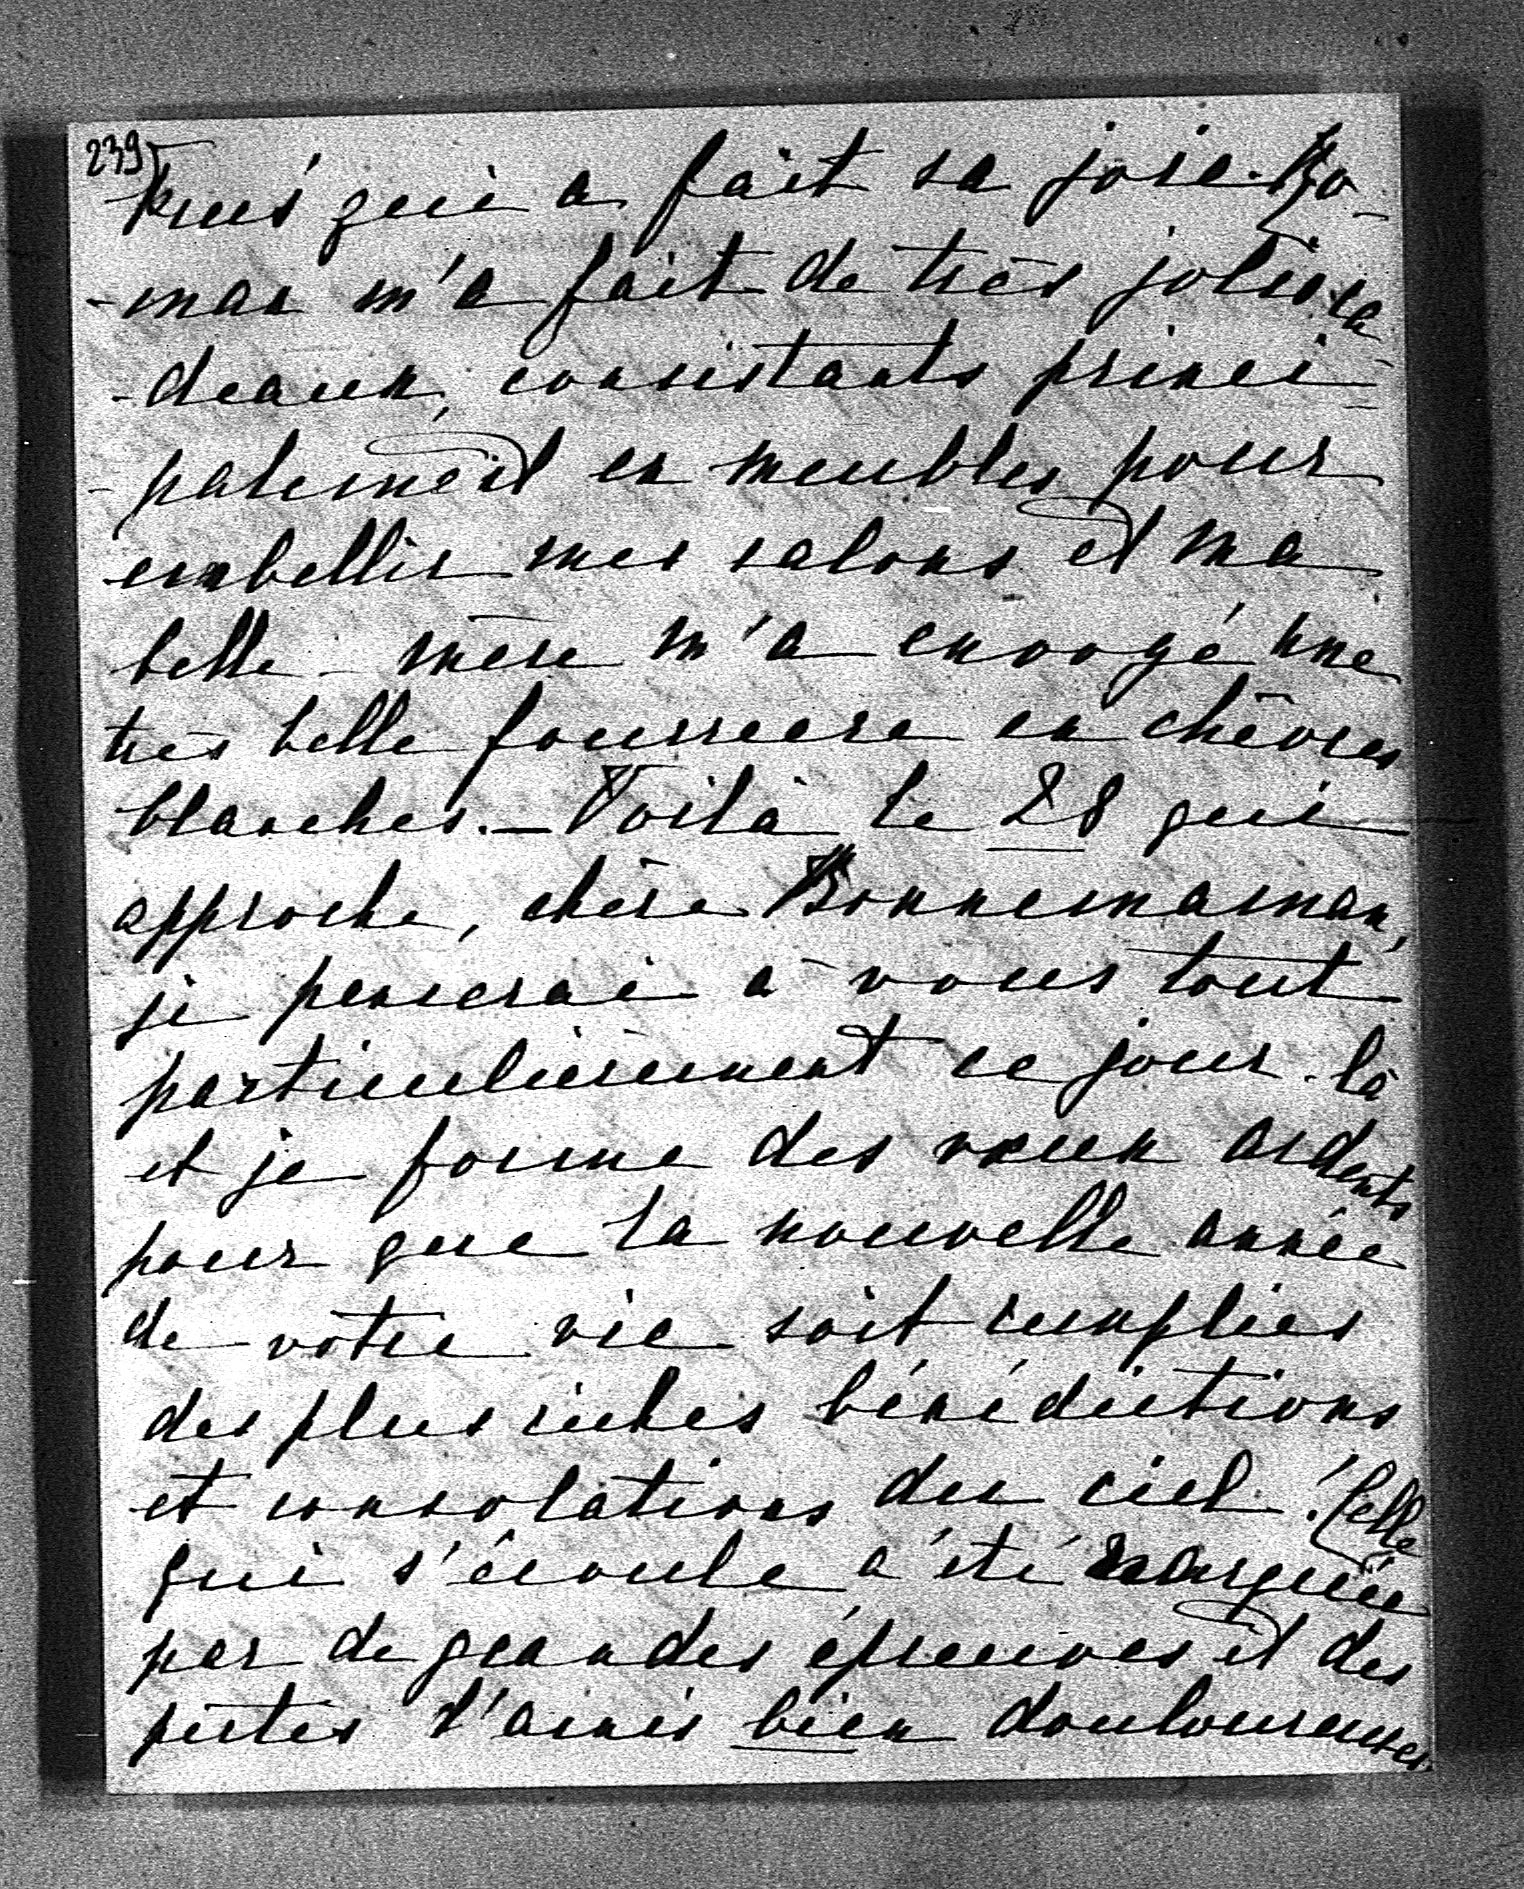 239
trus' qui a fait sa joie. Ro-
-man m'a fait de très jolis ca-
-deaux, consistants princi-
-palement en meubles pour
embellir mes salons et ma
belle-mère m'a envoyé une
très belle fourrure en chèvres
blanches. — Voilà le 28 qui
approche, chère Bonnemaman,
je penserai à vous tout
particulièrement ce jour-là
et je forme des vœux ardents
pour que la nouvelle année
de votre vie soit remplies
des plus riches bénédictions
et consolations du ciel! Celle
qui s'écoule a été marquée
par de grandes épreuves et des
pertes d'amis bien douloureuses.